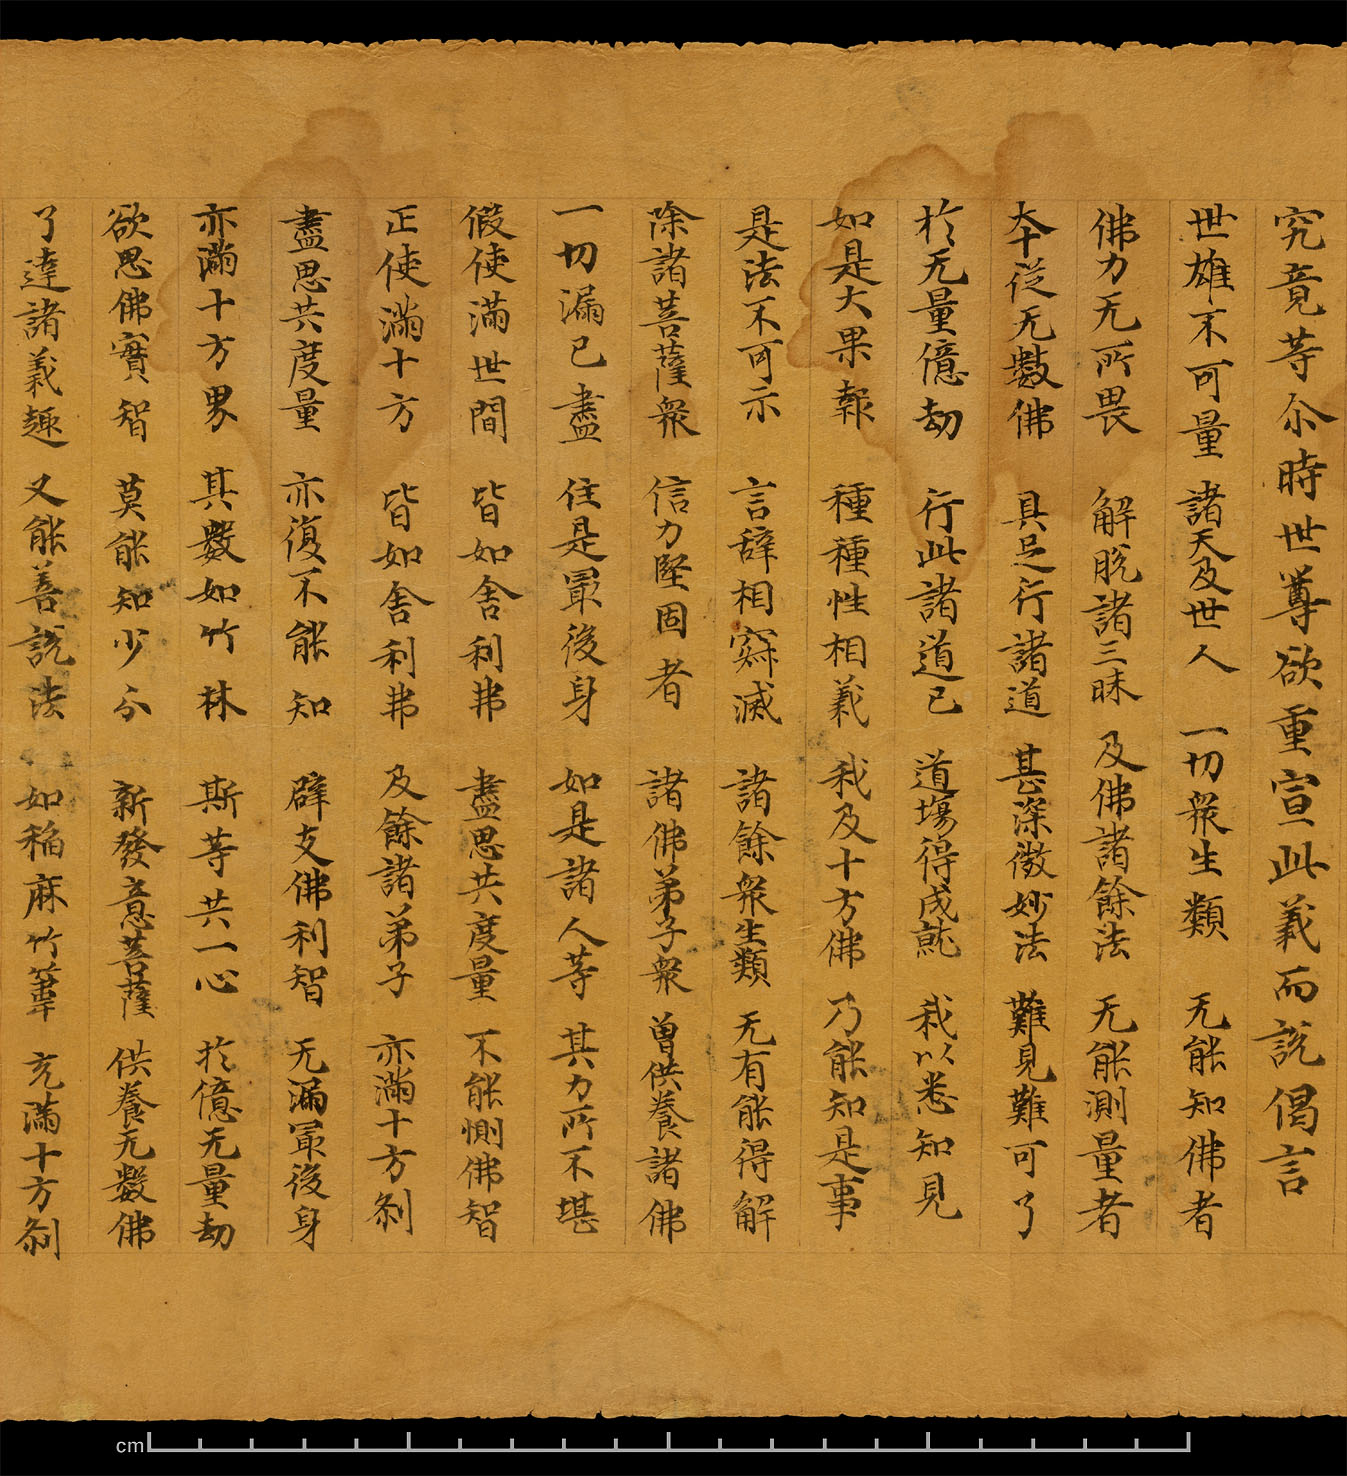 究竟等尒時世尊欲重宣此義而說偈言
世雄不可量 諸天及世人 一切衆生類 无能知佛者
佛力无所畏 解脫諸三昧 及佛諸餘法 无能測量者
夲從无數佛 具足行諸道 甚深微妙法 難見難可了
於无量億劫 行此諸道已 道場得成就 我以悉知見
如是大果報 種種性相義 我及十方佛 乃能知是事
是法不可示 言辞相寂滅 諸餘衆生類 无有能得解
除諸菩薩衆 信力堅固者 諸佛弟子衆 曽供養諸佛
一切漏已盡 住是冣後身 如是諸人等 其力所不堪
假使滿世間 皆如舍利弗 盡思共度量 不能惻佛智
正使滿十方 皆如舍利弗 及餘諸弟子 亦滿十方剎
盡思共度量 亦復不能知 辟支佛利智 无漏冣後身
亦滿十方界 其數如竹林 斯等共一心 於億无量劫
欲思佛實智 莫能知少分 新發意菩薩 供養无數佛
了達諸義趣 又能善說法 如稻麻竹葦 充滿十方剎
cm